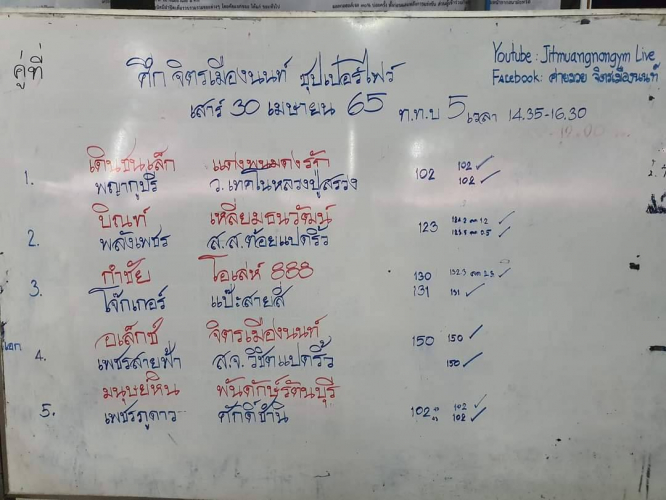 คู่ที่
ศึก จิตรเมืองนนท์ ซุปเปอร์ไฟว์
Youtube : Jitmuangnongym Live
Facebook: ค่ายมวย จิตรเมืองนนท์
เสาร์ 30 เมษายน 65 ท.ท.บ 5 เวลา 14.35-16.30
1.
เดินชนเล็ก
พญากุบรี ว.เทคโนหลวงปู่สรวง 102 102 ✓
102 ✓
2.
บิณฑ์ เหลี่ยมธนวัฒน์ 123
พลังเพชร ส.ส.ต้อยแปดริ้ว
3.
กำชัย โอเล่ห์ 888 130
โจ๊กเกอร์ แป๊ะสายสี 131 131 ✓
4. เอก
อเล็กซ์ จิตรเมืองนนท์ 150 150 ✓
เพชรสายฟ้า ส.จ.วิชิตแปดริ้ว 150 ✓
5.
มนุษย์หิน พันดักษ์รัตนบุรี
เพชรภูดาว ศักดิ์ชานิ 102 102 ✓
102 ✓